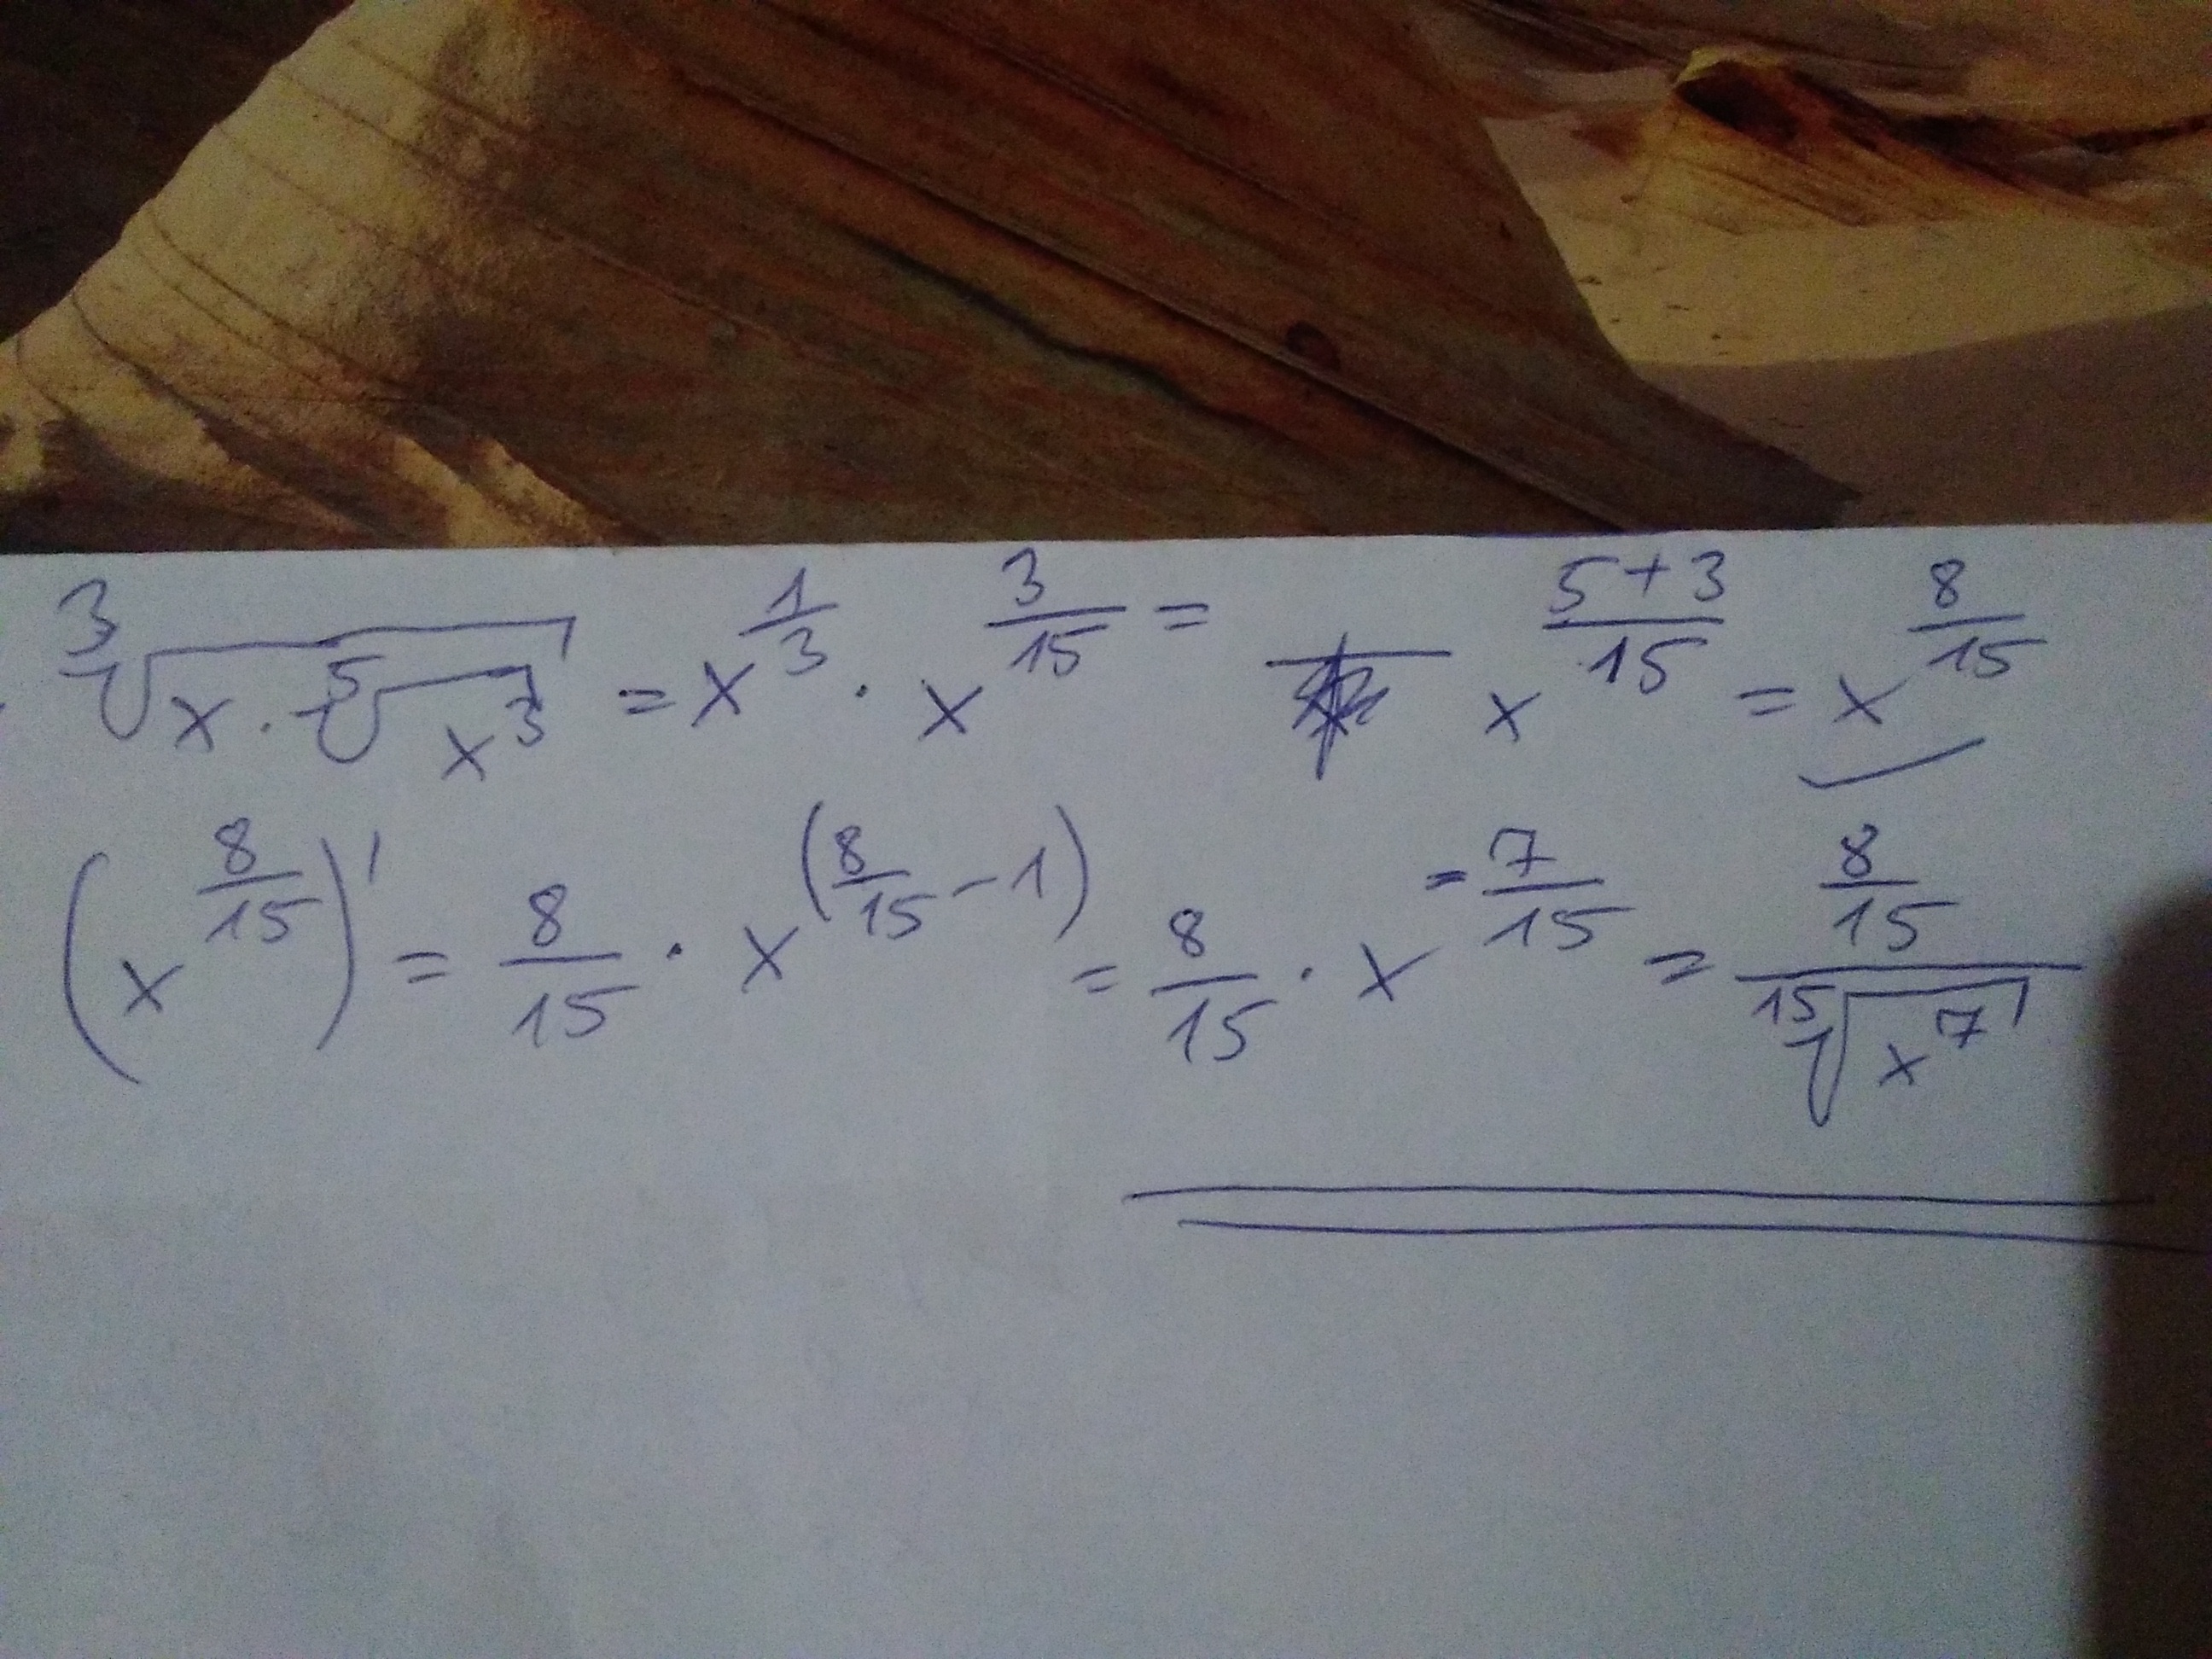 ∛(x · ⁵√(x³)) = x^(1/3) · x^(3/15) = x^((5+3)/15) = x^(8/15)
(x^(8/15))' = 8/15 · x^(8/15 - 1) = 8/15 · x^(-7/15) = (8/15)/(¹⁵√(x⁷))